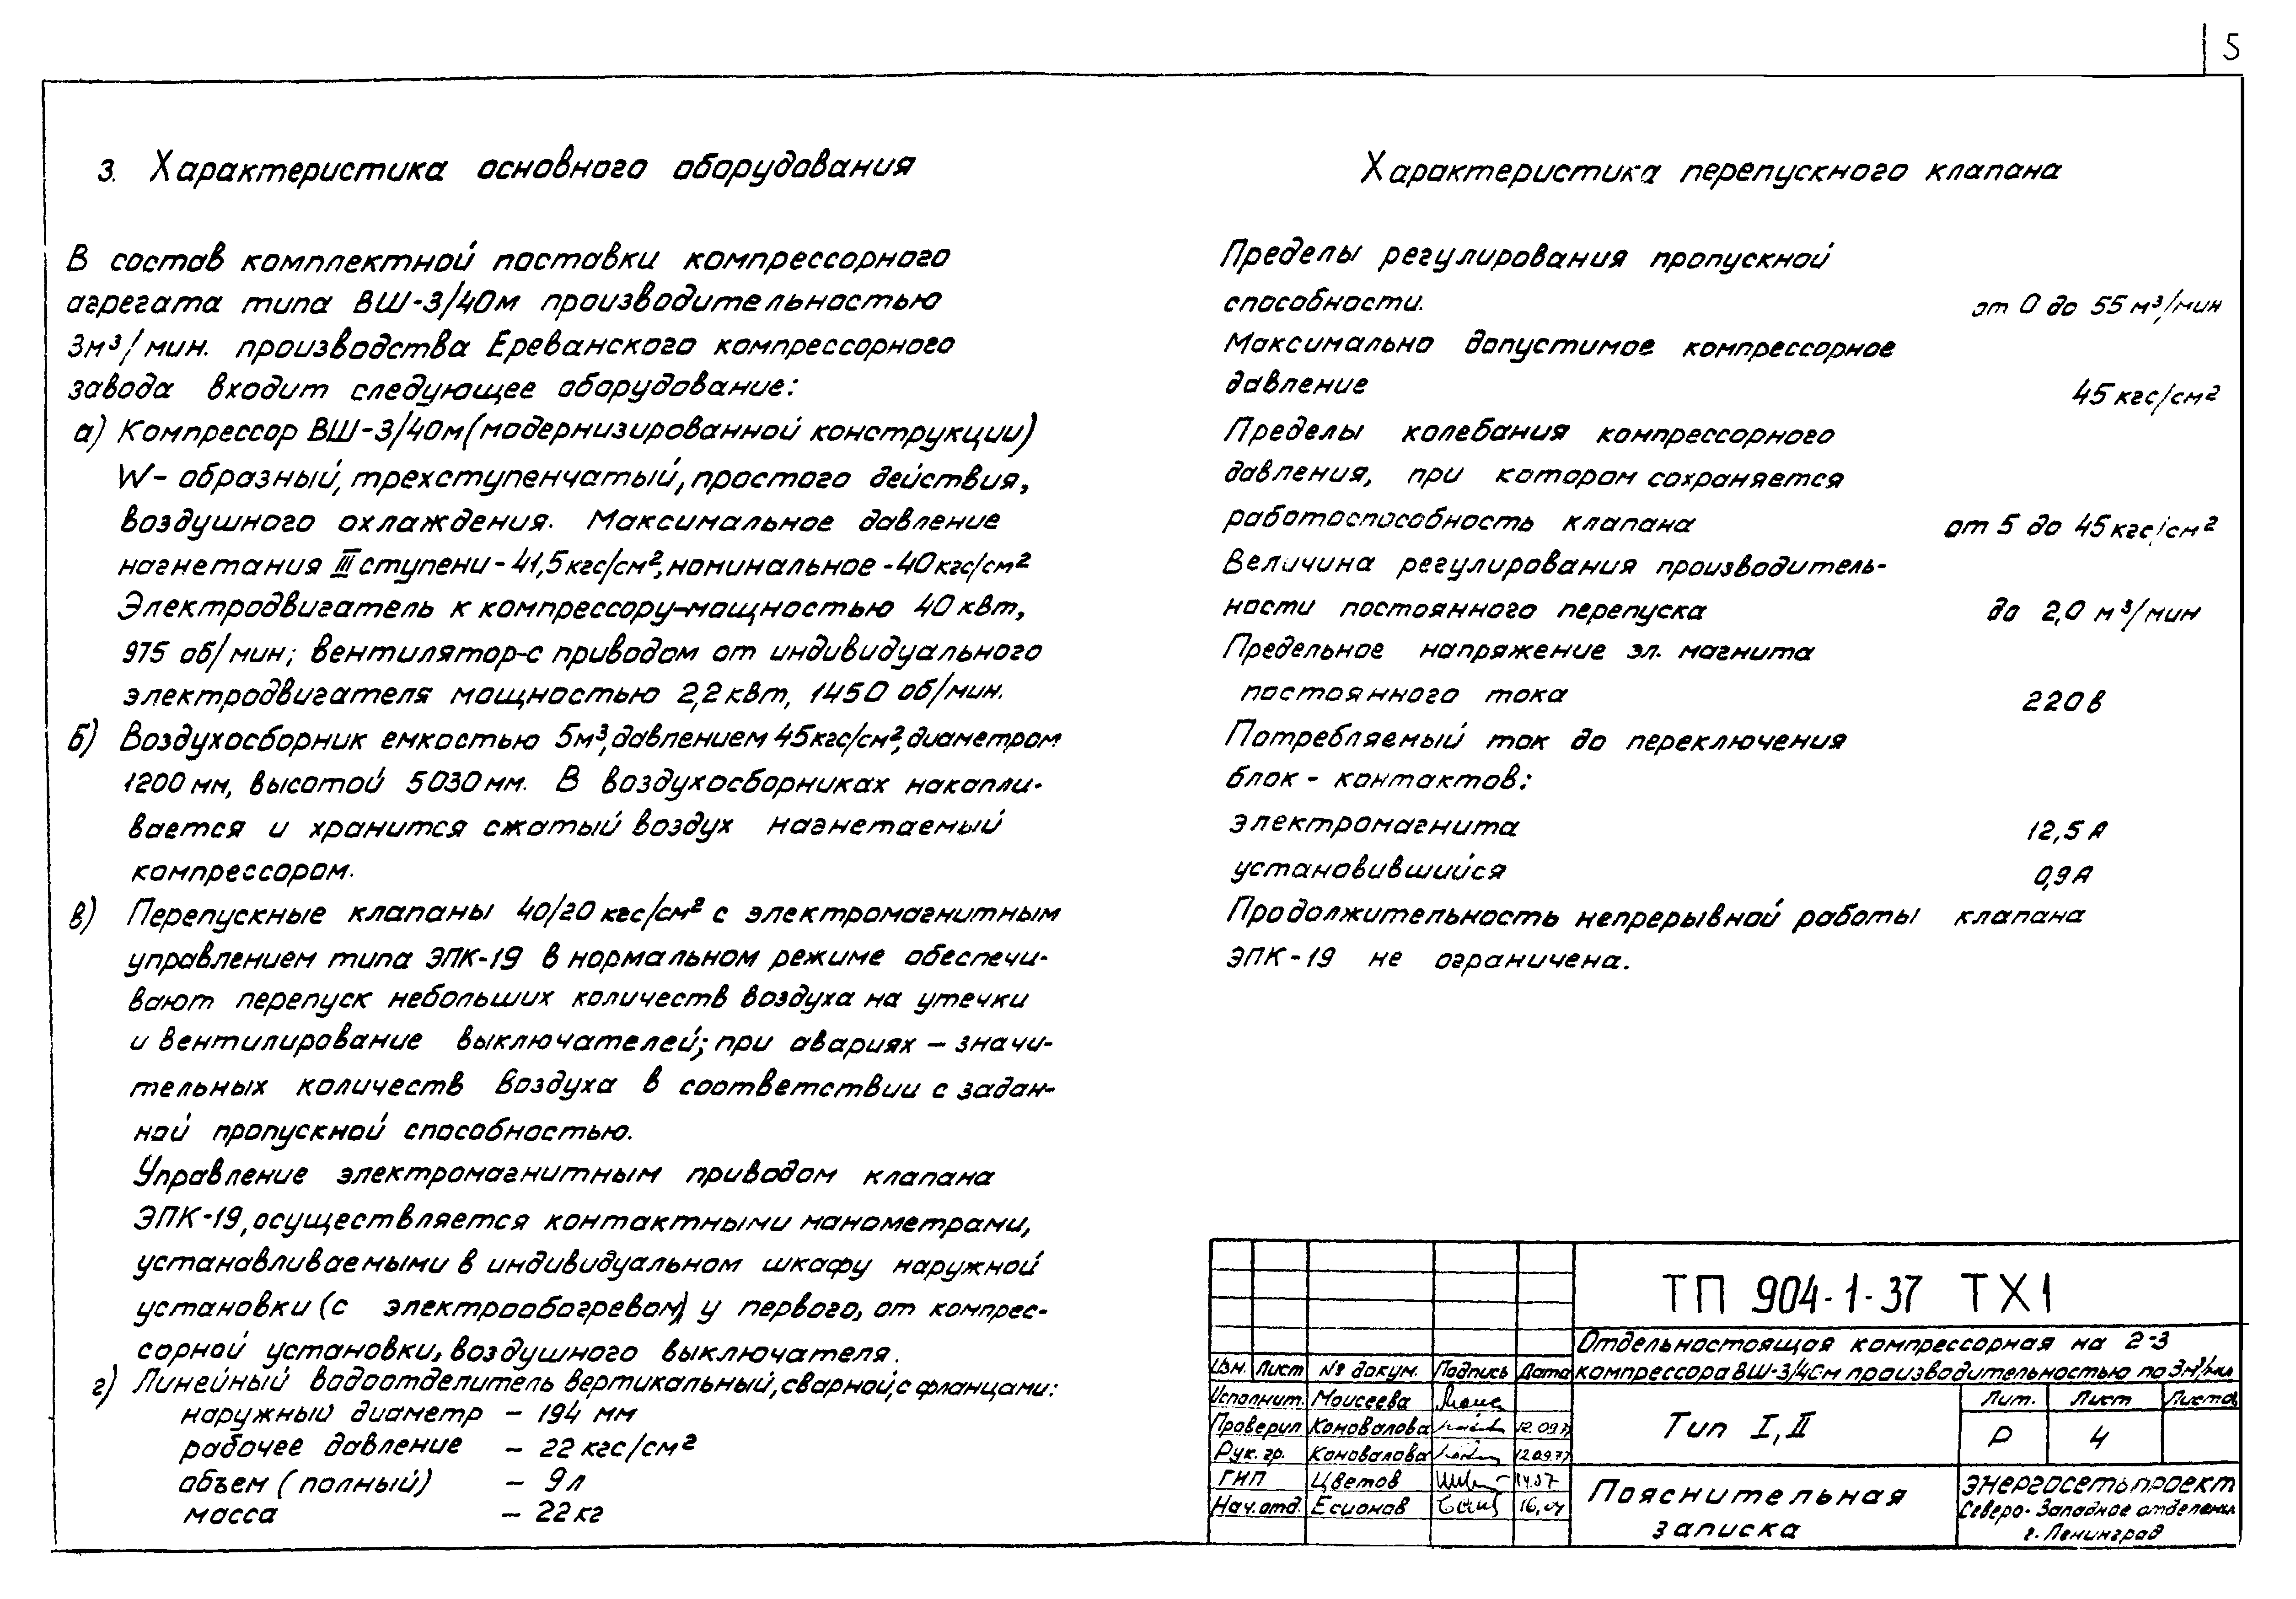 5
3. Характеристика основного оборудования
В состав комплектной поставки компрессорного
агрегата типа ВШ-3/40м производительностью
3м³/мин. производства Ереванского компрессорного
завода входит следующее оборудование:
а) Компрессор ВШ-3/40м (модернизированной конструкции)
W- образный, трехступенчатый, простого действия,
воздушного охлаждения. Максимальное давление
нагнетания III ступени - 41,5 кгс/см², номинальное - 40 кгс/см²
Электродвигатель к компрессору-мощностью 40 квт,
975 об/мин; вентилятор-с приводом от индивидуального
электродвигателя мощностью 2,2 квт, 1450 об/мин.
б) Воздухосборник емкостью 5м³, давлением 45кгс/см², диаметром
1200 мм, высотой 5030 мм. В воздухосборниках накапли-
вается и хранится сжатый воздух нагнетаемый
компрессором.
в) Перепускные клапаны 40/20 кгс/см² с электромагнитным
управлением типа ЭПК-19 в нормальном режиме обеспечи-
вают перепуск небольших количеств воздуха на утечки
и вентилирование выключателей; при авариях - значи-
тельных количеств воздуха в соответствии с задан-
ной пропускной способностью.
Управление электромагнитным приводом клапана
ЭПК-19, осуществляется контактными манометрами,
устанавливаемыми в индивидуальном шкафу наружной
установки (с электрообогревом) у первого, от компрес-
сорной установки, воздушного выключателя.
г) Линейный водоотделитель вертикальный, сварной, с фланцами:
наружный диаметр - 194 мм
рабочее давление - 22 кгс/см²
объем (полный) - 9 л
масса - 22 кг
Характеристика перепускного клапана
Пределы регулирования пропускной
способности. от 0 до 55 м³/мин
Максимально допустимое компрессорное
давление 45 кгс/см²
Пределы колебания компрессорного
давления, при котором сохраняется
работоспособность клапана от 5 до 45 кгс/см²
Величина регулирования производитель-
ности постоянного перепуска до 2,0 м³/мин
Предельное напряжение эл. магнита
постоянного тока 220 в
Потребляемый ток до переключения
блок - контактов:
электромагнита 12,5 А
установившийся 0,9 А
Продолжительность непрерывной работы клапана
ЭПК-19 не ограничена.
ТП 904-1-37 ТХ1
Отдельностоящая компрессорная на 2-3
компрессора ВШ-3/40м производительностью по 3м³/мин
Изм. Лист № докум. Подпись Дата
Исполнит. Моисеева
Проверил Коновалова 12.09.77
Рук. гр. Коновалова 12.09.77
ГИП Цветов
Нач. отд. Есионов
Тип I, II
Лит. Лист Листов
Р 4
Пояснительная
записка
ЭНЕРГОСЕТЬПРОЕКТ
Северо-Западное отделение
г. Ленинград